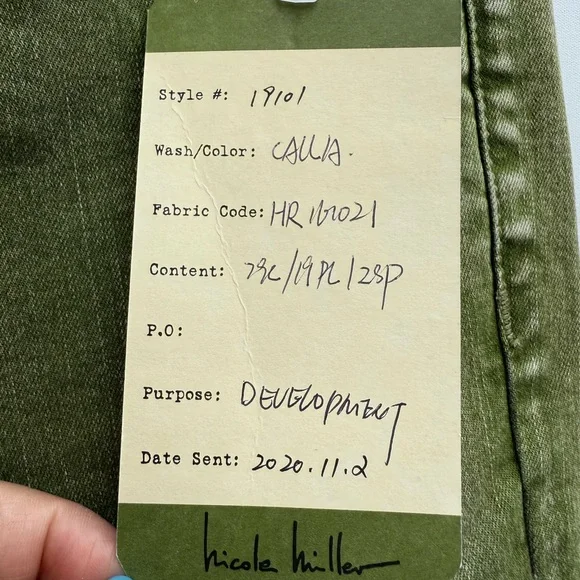 Style #: 19101
Wash/Color: CALLA.
Fabric Code: HR161021
Content: 79C/19PL/2SP
P.O:
Purpose: DEVELOPMENT
Date Sent: 2020.11.2
nicole miller